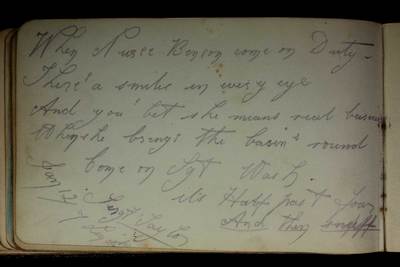 When Nurse Benson come on Duty -
There's a smile in every eye
And you bet she means real busines
When she brings the basin's round
Come on Sgt Wash.
its Half past Four
And then snuff
Sgt Taylor